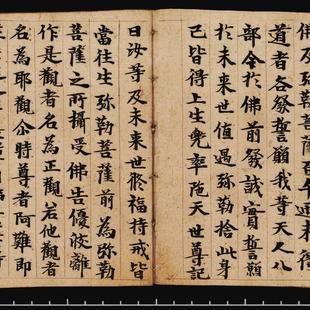 佛及弥勒菩薩百千
未得
道者各發誓願我等天人八
部今於佛前發誠實誓願
於未来世值遇弥勒捨此身
已皆得上生兜率陁天世尊記
曰汝等及未来世修福持戒皆
當往生弥勒菩薩前為弥勒
菩薩之所攝受佛告優波離
作是觀者名為正觀若他觀者
名為耶觀尒時尊者阿難即